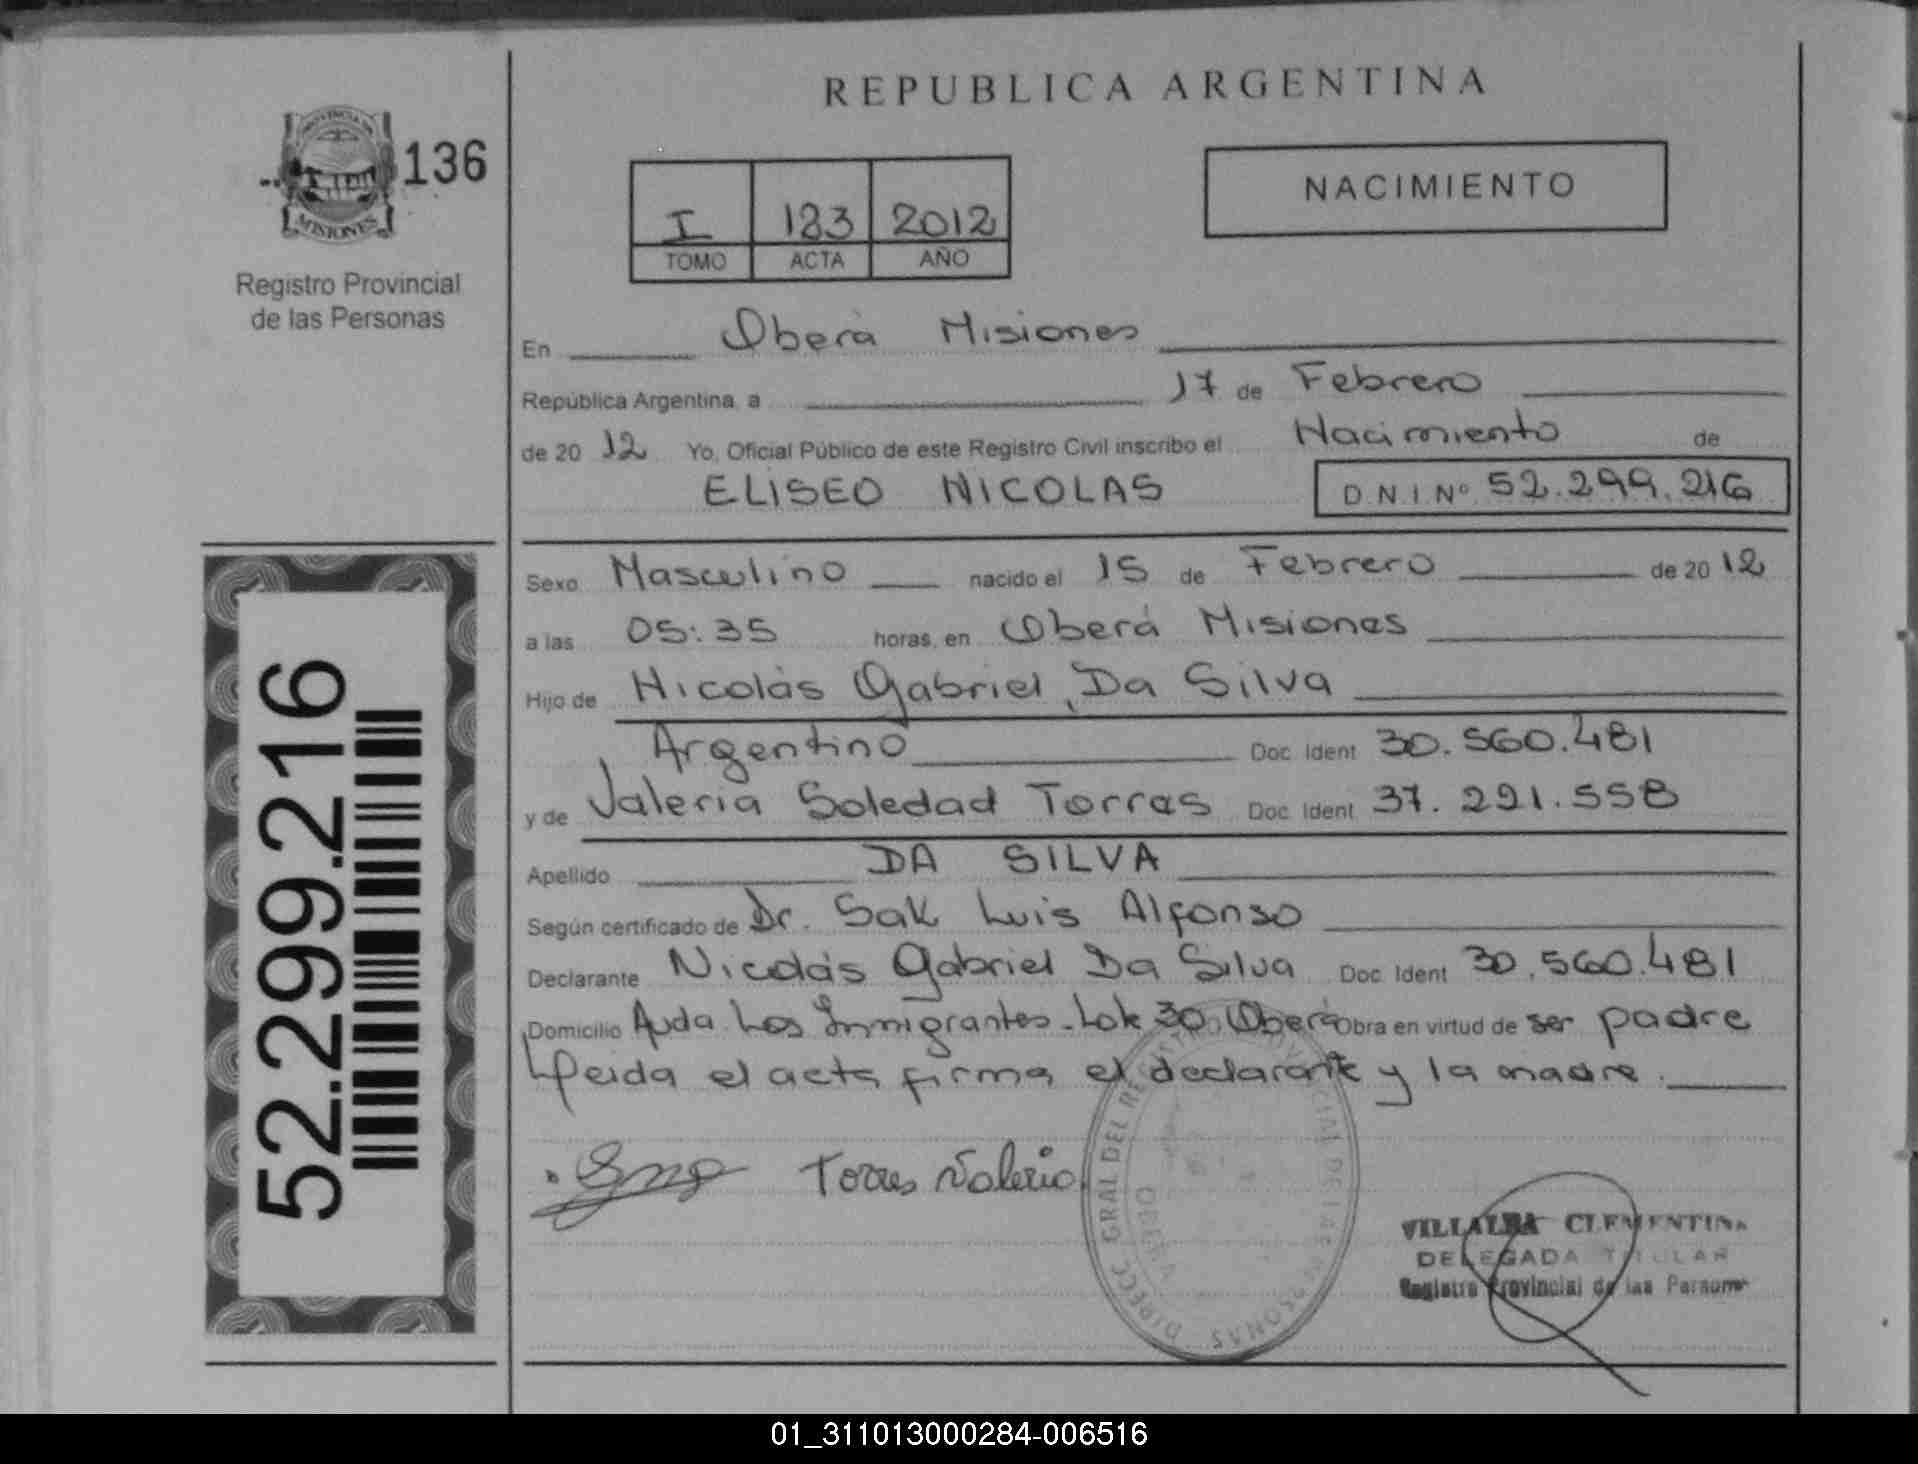 REPUBLICA ARGENTINA
PROVINCIA DE
MISIONES
136
Registro Provincial
de las Personas
I 123 2012
TOMO ACTA AÑO
NACIMIENTO
En Oberá Misiones
República Argentina, a 17 de Febrero
de 20 12 Yo, Oficial Público de este Registro Civil inscribo el Nacimiento de
ELISEO NICOLAS D.N.I. Nº 52.299.216
Sexo Masculino nacido el 15 de Febrero de 20 12
a las 05:35 horas, en Oberá Misiones
Hijo de Nicolás Gabriel, Da Silva
Argentino Doc. Ident 30.560.481
y de Valeria Soledad Torres Doc. Ident 37.291.558
Apellido DA SILVA
Según certificado de Dr. Sak Luis Alfonso
Declarante Nicolás Gabriel Da Silva Doc. Ident 30.560.481
Domicilio Avda. Los Inmigrantes - Lote 30 Oberá Obra en virtud de ser padre
Leida el acta firma el declarante y la madre.
Torres Valeria
DIRECC GRAL DEL REGISTRO PROVINCIAL DE LAS PERSONAS
VILLALBA CLEMENTINA
DELEGADA TITULAR
Registro Provincial de las Personas
52.299.216
01_311013000284-006516